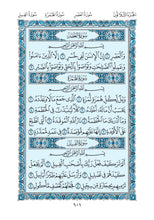 الجزء الثلاثون سورة العصر سورة الهمزة سورة الفيل
سورة العصر
بسم الله الرحمن الرحيم
والعصر ١ إن الإنسان لفي خسر ٢ إلا الذين آمنوا
وعملوا الصالحات وتواصوا بالحق وتواصوا بالصبر ٣
سورة الهمزة
بسم الله الرحمن الرحيم
ويل لكل همزة لمزة ١ الذي جمع مالا وعدده ٢ يحسب
أن ماله أخلده ٣ كلا لينبذن في الحطمة ٤ وما أدراك
ما الحطمة ٥ نار الله الموقدة ٦ التي تطلع على
الأفئدة ٧ إنها عليهم مؤصدة ٨ في عمد ممددة ٩
سورة الفيل
بسم الله الرحمن الرحيم
ألم تر كيف فعل ربك بأصحاب الفيل ١ ألم يجعل
كيدهم في تضليل ٢ وأرسل عليهم طيرا أبابيل ٣
ترميهم بحجارة من سجيل ٤ فجعلهم كعصف مأكول ٥
٦٠١